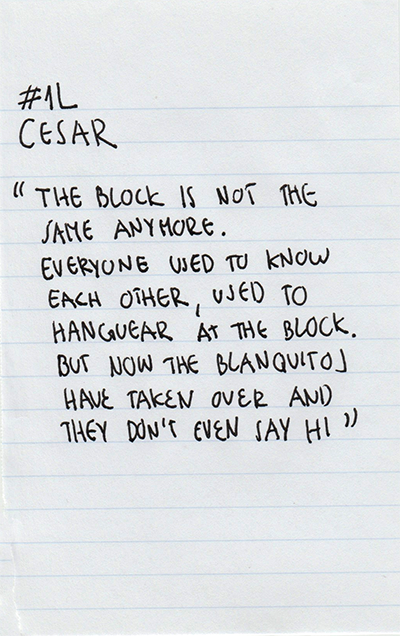 #1L
CESAR
"THE BLOCK IS NOT THE
SAME ANYMORE.
EVERYONE USED TO KNOW
EACH OTHER, USED TO
HANGUEAR AT THE BLOCK.
BUT NOW THE BLANQUITOS
HAVE TAKEN OVER AND
THEY DON'T EVEN SAY HI"